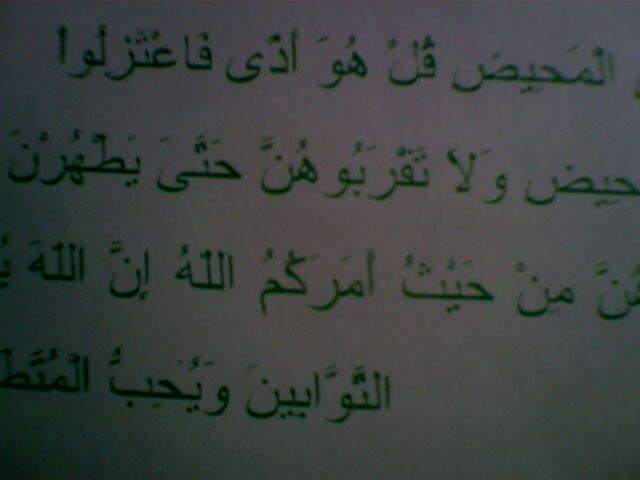 الْمَحِيضِ قُلْ هُوَ أَذًى فَاعْتَزِلُواْ
حِيضِ وَلاَ تَقْرَبُوهُنَّ حَتَّىَ يَطْهُرْنَ
هُنَّ مِنْ حَيْثُ أَمَرَكُمُ اللّهُ إِنَّ اللّهَ يُ
التَّوَّابِينَ وَيُحِبُّ الْمُتَطَ